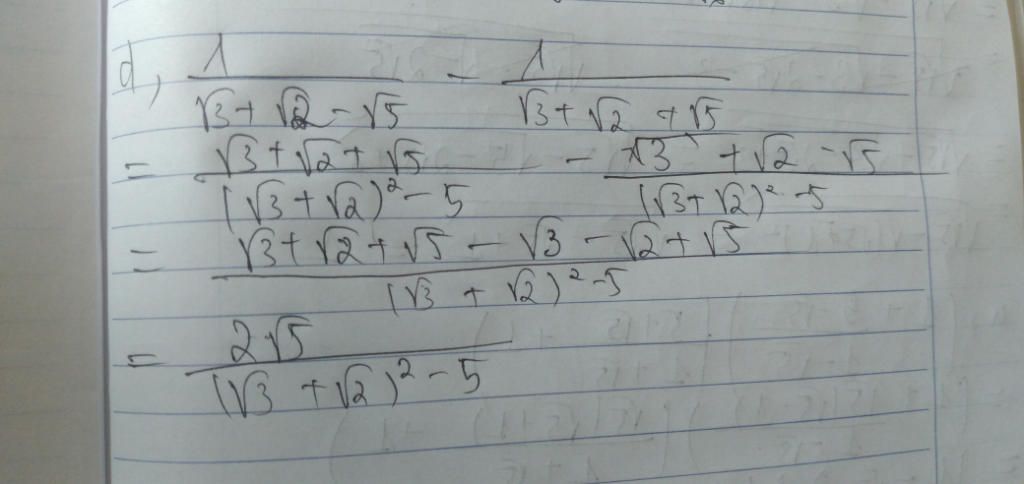 d, 1/(√3 + √2 - √5) - 1/(√3 + √2 + √5)
= (√3 + √2 + √5)/((√3 + √2)² - 5) - (√3 + √2 - √5)/((√3 + √2)² - 5)
= (√3 + √2 + √5 - √3 - √2 + √5)/((√3 + √2)² - 5)
= 2√5/((√3 + √2)² - 5)